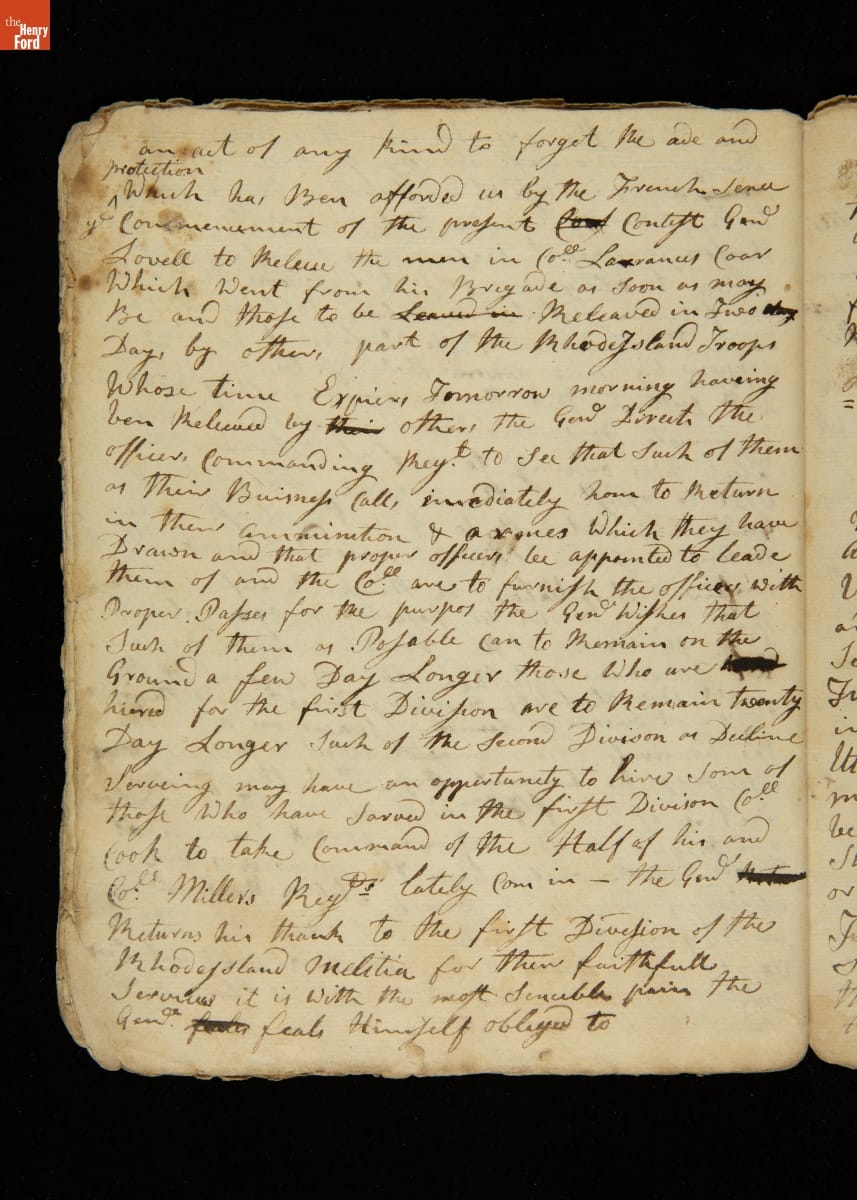 the Henry Ford
an act of any kind to forget the ade and
protection
^ Which has Ben afforded us by the French sence
ye Commencement of the present Contest Genl
Lovell to Releive the men in Coll Lawrances Coar
Which Went from his Brigade as soon as may
Be and those to be Leaved in Releaved in Two
Days by others part of the RhodeIsland Troops
Whose time Expiers Tomorrow morning haveing
ben Releaved by their others the Genl Directs the
officers Commanding Regt. to See that Such of them
as their Buisness Calls imediately hom to Return
in their ammunition & armes Which they have
Drawn and that proper officers be appointed to leade
them of and the Coll are to furnish the officers with
Proper Passes for the purpos the Genl Wishes that
Such of them as Possable can to Remain on the
Ground a few Day Longer those Who are
hiered for the first Division are to Remain twenty
Day Longer Such of the Second Divison as Decline
Serveing may have an opportunity to hire Som of
those Who have Sarved in the first Divison Coll
Cook to take Command of the Half of his and
Coll Millers Regts lately Com in — the Genl
Returns his thank to the first Division of the
RhodeIsland Melitia for their faithfull
Services it is with the most Sencable pain the
Genl. feals Himself oblaged to